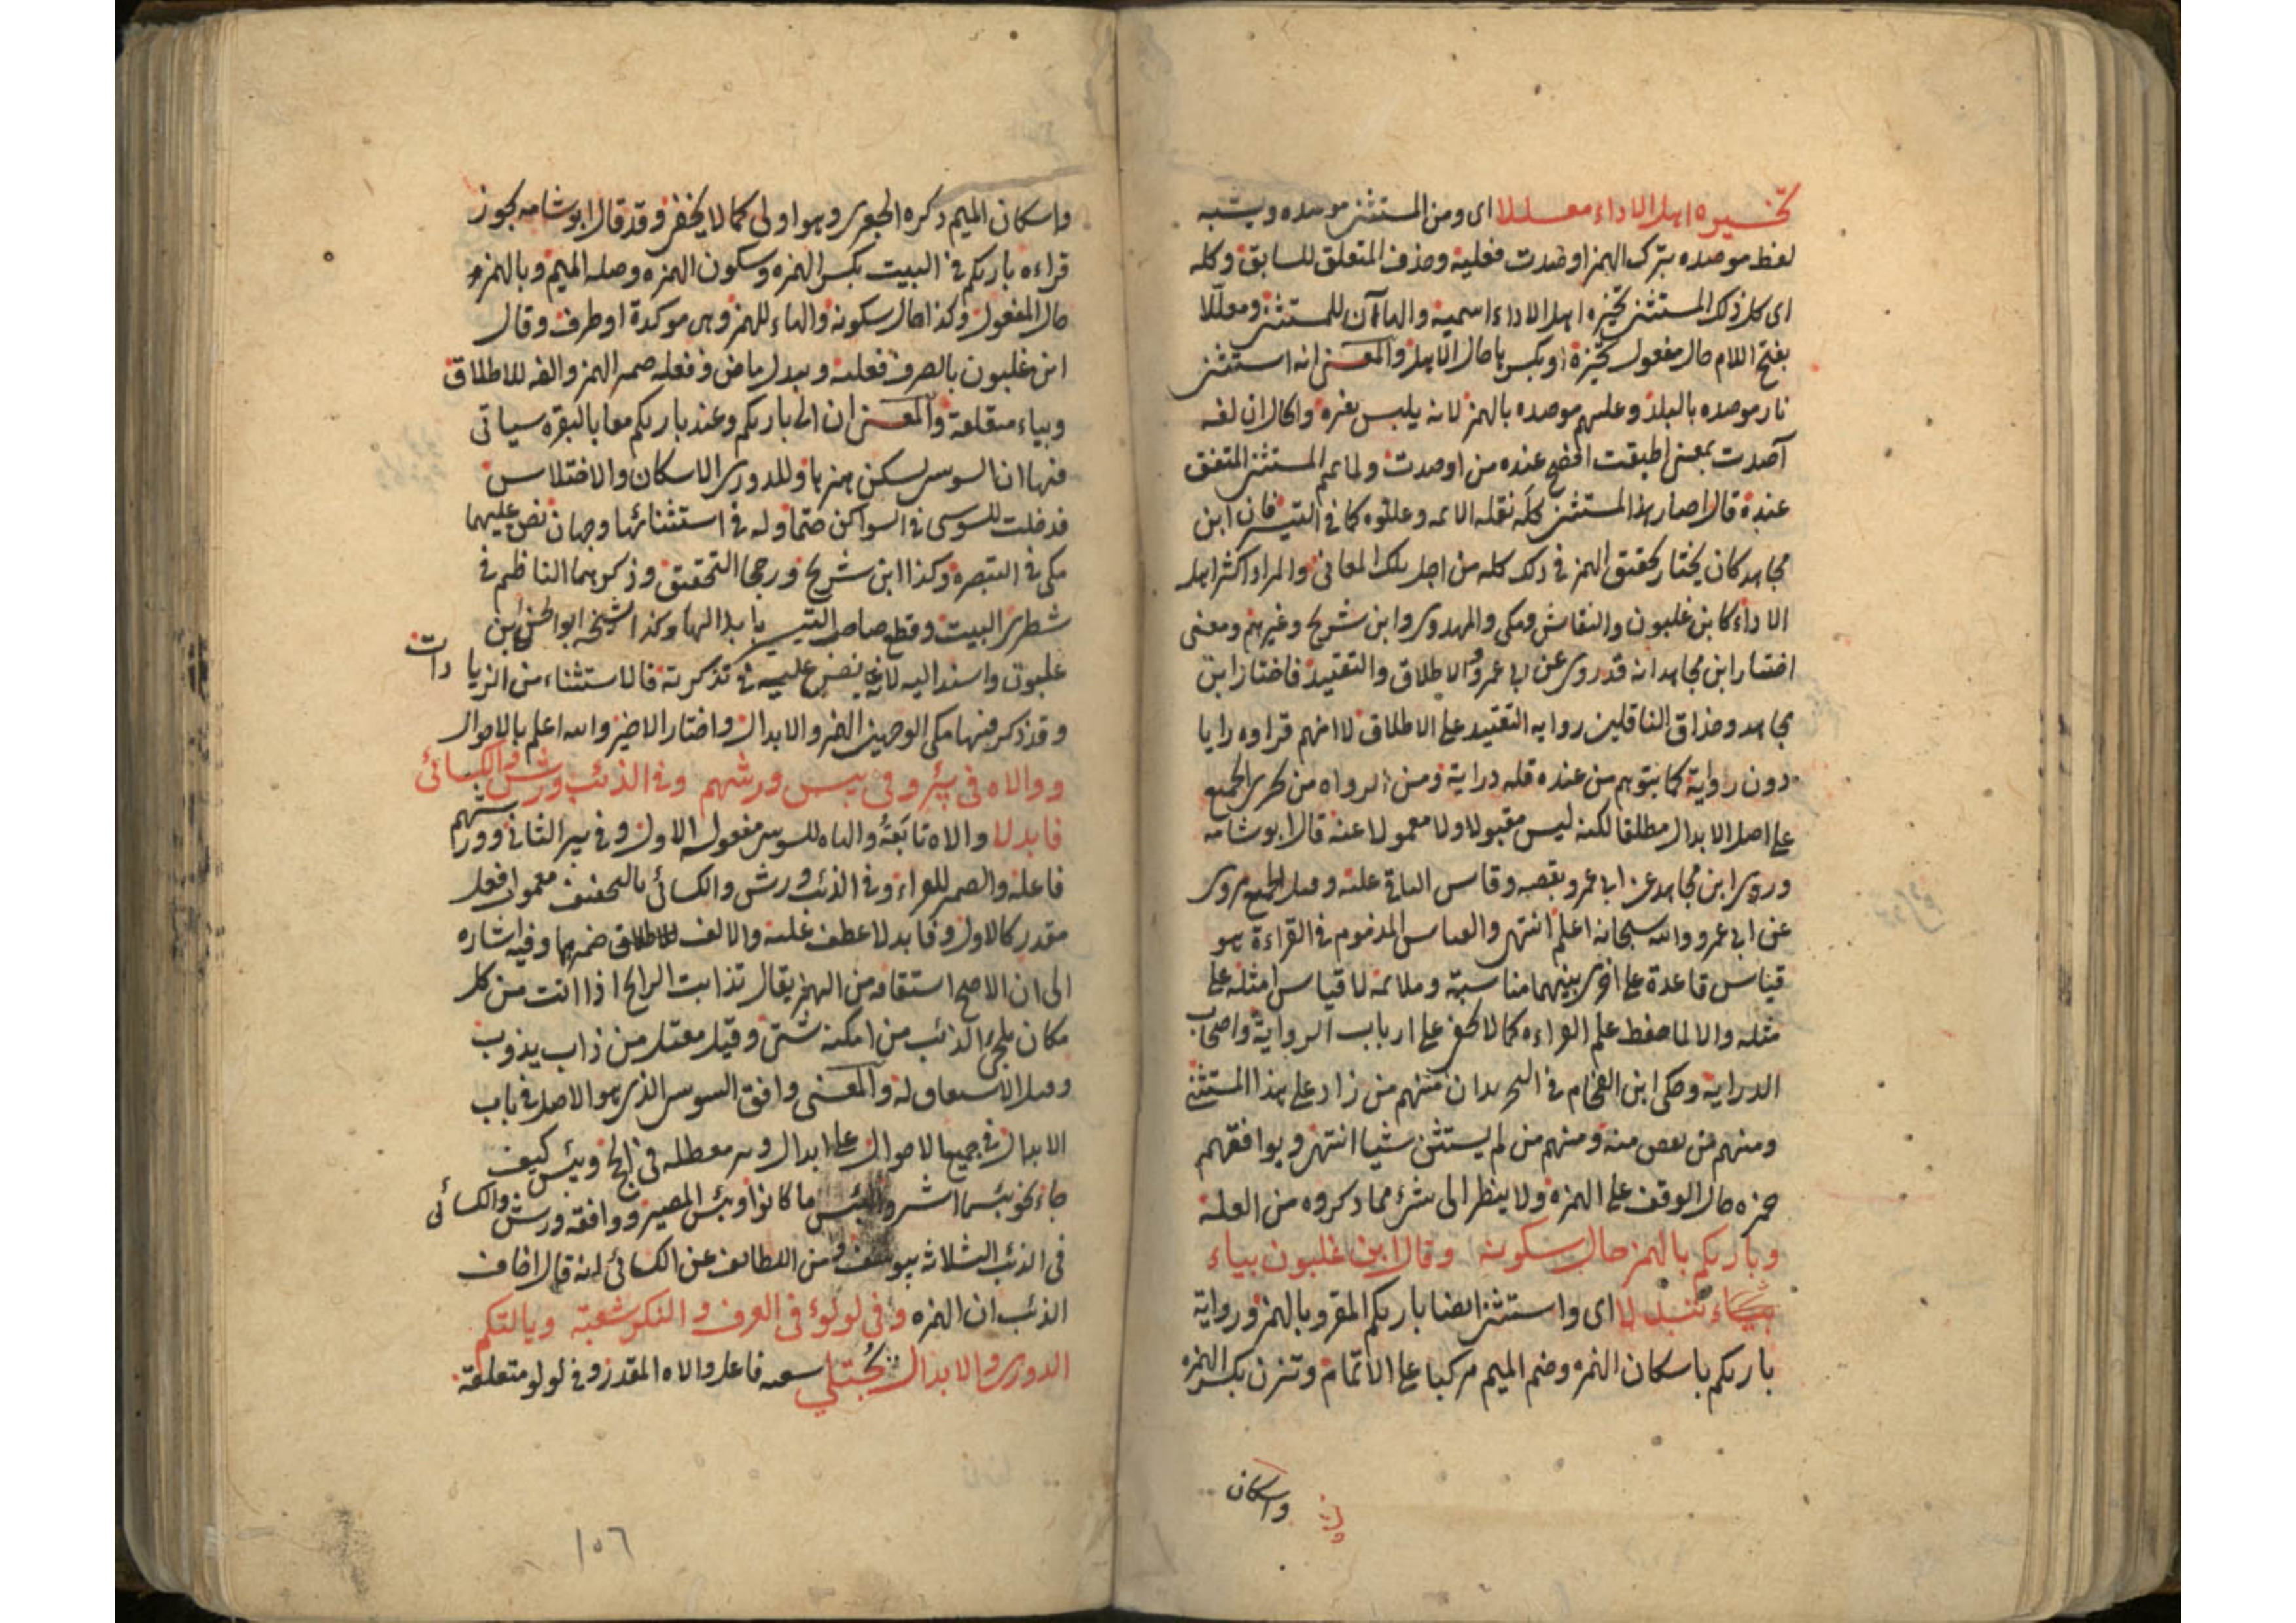 تخيره اهل الاداء معللا اى ومن المستثنى موصده ويشبه
لفظ موصده بترك الهمز اوصدت فعلية وحذف المتعلق للسابق وكله
اى كل ذلك المستثنى تخيره اهل الاداء اسمية والهاآن للمستثنى ومعللا
بفتح اللام حال مفعول تخيره او بكسرها حال الاهل والمعنى انه استثنى
نار موصده بالبلد وعليهم موصده بالهمز لانه يلبس بغيره وا كان لغه
آصدت بمعنى اطبقت افصح عنده من اوصدت ولما تم المستثنى المتفق
عنده قال اصار هذا المستثنى كله نقله الائمه وعللوه كما فى التيسير فان ابن
مجاهد كان يختار تحقيق الهمز فى ذلك كله من اجل تلك المعانى والمراد اكثر اهل
الاداء كابن غلبون والنقاش ومكى والمهدوى وابن شريح وغيرهم ومعنى
اختيار ابن مجاهد انه قد روى عن ابى عمرو الاطلاق والتقييد فاختار ابن
مجاهد وحذاق الناقلين روايه التقييد على الاطلاق لا انهم قراوه رايا
دون رواية كما يتوهم من عنده قله دراية ومن الرواه من اجرى الجميع
على اصل الابدال مطلقا لكنه ليس مقبولا ولا معمولا عنه قال ابو شامه
وروى ابن مجاهد عن ابى عمرو بعضه وقاس الباقى عليه وقيل الجميع مروى
عن ابى عمرو والله سبحانه اعلم انتهى والقياس المذموم فى القراءة هو
قياس قاعدة على اخرى بينهما مناسبة وملائمه لا قياس امثله على
مثله والا لما حفظ علم القراءه كما لا يخفى على ارباب الرواية واصحاب
الدراية وحكى ابن الفحام فى التجريد ان منهم من زاد على هذا المستثنى
ومنهم من نقص منه ومنهم من لم يستثن شيا انتهى ويوافقهم
حمزه حال الوقف على الهمزه ولا ينظر الى شئ مما ذكروه من العله
وباريكم بالهمز حال سكونه وقال ابن غلبون بياء
تبدلا اى واستثنى ايضا باريكم المقرو بالهمز ورواية
باريكم باسكان الهمزه وضم الميم مركبا على الاتمام وتزن بكسر الهمزه
واسكان
واسكان الميم ذكره الجعبرى وهو اولى كما لا يخفى وقد قال ابو شامه يجوز
قراءه باريكم فى البيت بكسر الهمزه وسكون الهمزه وصله الميم وبالهمز
حال المفعول وكذا حال سكونه والهاء للهمز وهى موكدة او ظرف وقال
ابن غلبون بالصرف فعليه وتبدل ماض وفعله ضمير الهمز والفه للاطلاق
وبياء متعلقة والمعنى ان الى باريكم وعند باريكم معا بالبقره سياتى
فيها ان السوسى يسكن همزها وللدورى الاسكان والاختلاس
فدخلت للسوسى فى السواكن حتما وله فى استثنائها وجهان نص عليهما
مكى فى التبصره وكذا ابن شريح ورجحا التحقيق وذكرهما الناظم فى
شطرى البيت وقطع صاحب التيسير بابدالها وكذا شيخه ابو الحسن بن
غلبون واسند اليه لانه نص عليه فى تذكرته فالاستثناء من الزيا دات
وقد ذكر فيها مكى الوجهين الهمز والابدال واختار الاخير والله اعلم بالاحوال
ووالاه فى بئر وفى بيس ورشهم وفى الذئب ورش والكسائى
فابدلا والاه تابعه والهاء للسوسى مفعوله الاول وفى بير الثانى وورشهم
فاعله والضمير للقراء وفى الذئب ورش والكسائى بالتخفيف معمولا فعل
مقدر كالاول وفابدلا عطف عليه والالف للاطلاق ضميرهما وفيه اشاره
الى ان الاصح اشتقاقه من الهمز يقال تذابت الرياح اذا اتت من كل
مكان يجئ الذئب من امكنه شتى وقيل معتل من ذاب يذوب
وقيل لا اشتقاق له والمعنى وافق السوسى الذى هو الاصل فى باب
الابدال فى جميع الاحوال على ابدال وبير معطله فى الحج وبئس كيف
جاء نحو بئسما اشتروا ولبئس ما كانوا وبئس المصير ووافقه ورش والكسائى
فى الذئب الثلاثه بيوسف ومن اللطائف عن الكسائى انه قال اخاف
الذئب ان الهمزه وفى لولوء فى العرف والنكر شعبة ويالتكم
الدورى والابدال يجتلى شعبه فاعل والاه المقدر وفى لولو متعلقة
١٥٦